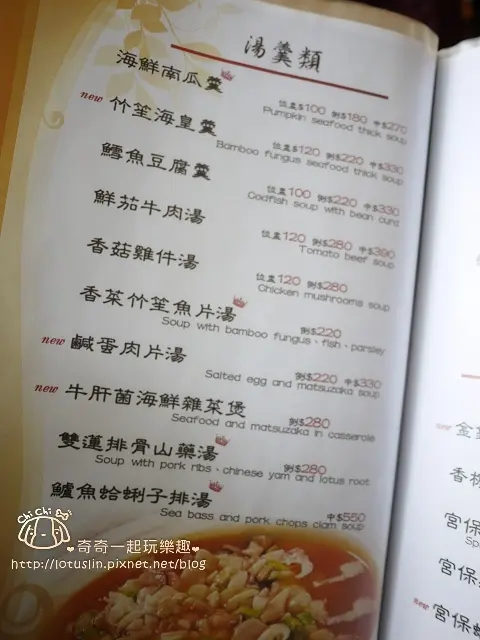 湯羹類
海鮮南瓜羹
位盅$100 例$180 中$270
Pumpkin seafood thick soup
new 竹笙海皇羹
位盅$120 例$220 中$330
Bamboo fungus seafood thick soup
鱈魚豆腐羹
位盅100 例$220 中$330
Codfish soup with bean curd
鮮茄牛肉湯
位盅120 例$280 中$390
Tomato beef soup
香菇雞件湯
位盅120 例$280
Chicken mushrooms soup
香菜竹笙魚片湯
例$220
Soup with bamboo fungus、fish、parsley
new 鹹蛋肉片湯
例$220 中$330
Salted egg and matsuzaka soup
new 牛肝菌海鮮雜菜煲
例$280
Seafood and matsuzaka in casserole
雙蓮排骨山藥湯
例$280
Soup with pork ribs、chinese yam and lotus root
鱸魚蛤蜊子排湯
中$550
Sea bass and pork chops clam soup
new 金
香
宮保
宮保
new 宮保
Chi Chi
奇奇一起玩樂趣
http://lotuslin.pixnet.net/blog